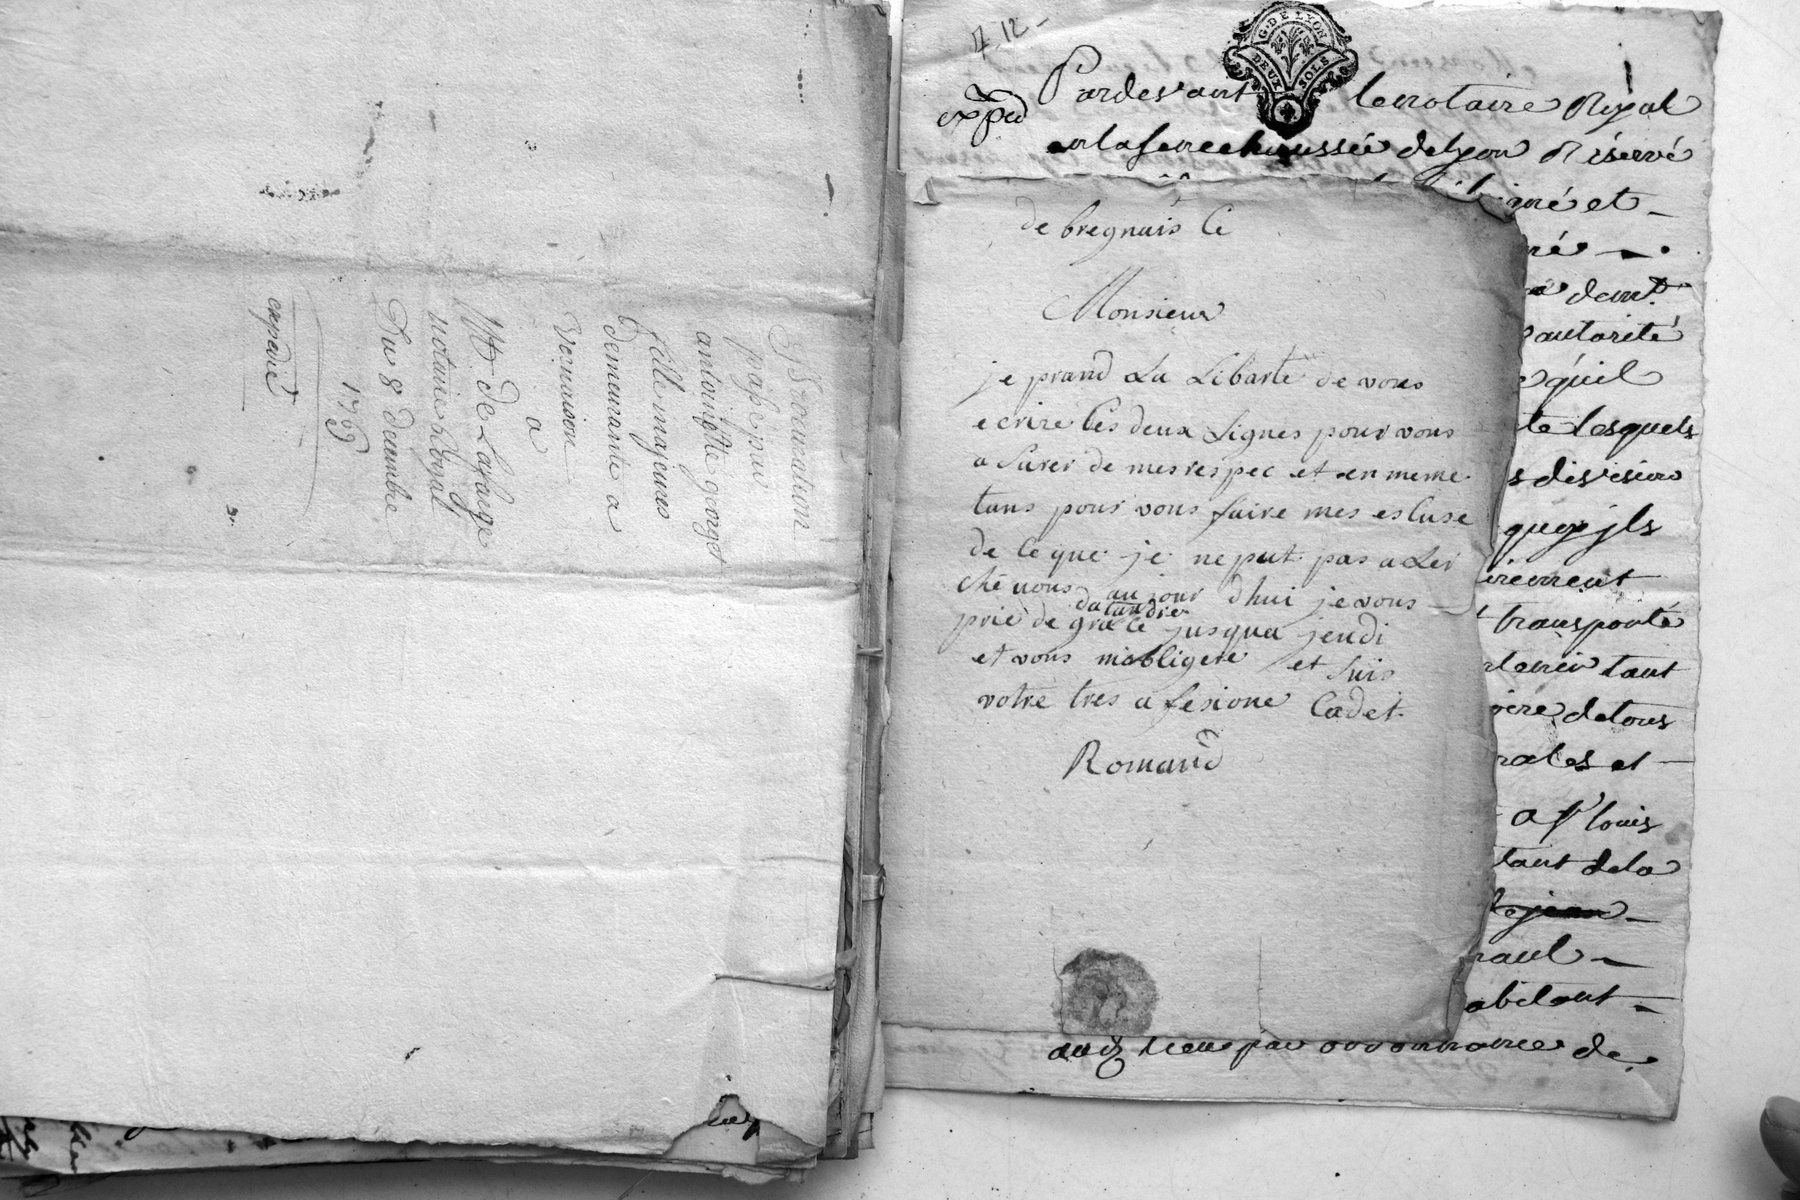 Procuration
passé par
antoinette george
fille majeure
demeurante a
Vernaison
a
Mt de Lafarge
notaire Royal
Du 8 decembre
1769
expedié
7 12
G. DE LYON
DEUX SOLS
expéd
Pardevant le notaire Royal
en la senechaussée de Lyon Réservé
igné et
né
dent
autorité
quil
te lesquels
s divisions
que jls
transporté
tant
de tous
rales et
a st louis
tant dela
jean
raul
abitant
aud lieu par ordonnance de
de bregnais Ce
Monsieur
je prand La Libarté de vous
ecrire Ces deux Lignes pour vous
a surer de mes respec et en meme
tans pour vous faire mes escuse
de Ce que je ne put pas a Ler
ché vous au jour dhui je vous
prie de grace datandre jusqua jeudi
et vous m'obligere et suis
votre tres a fesioné Cadet
Romand